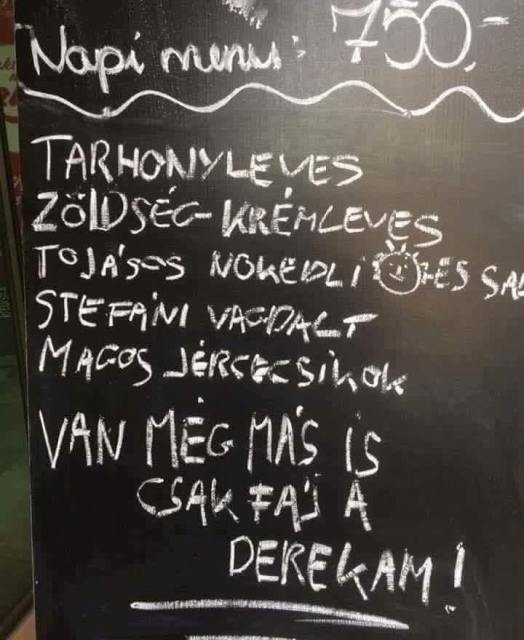 Napi menu: 750.-
TARHONYLEVES
ZÖLDSÉG-KRÉMLEVES
TOJÁSOS NOKEDLI ÖZES SAL
STEFÁNI VAGDALT
MAGOS JÉRCECSÍKOK
VAN MÉG MÁS IS
CSAK FÁJ A
DEREKAM!